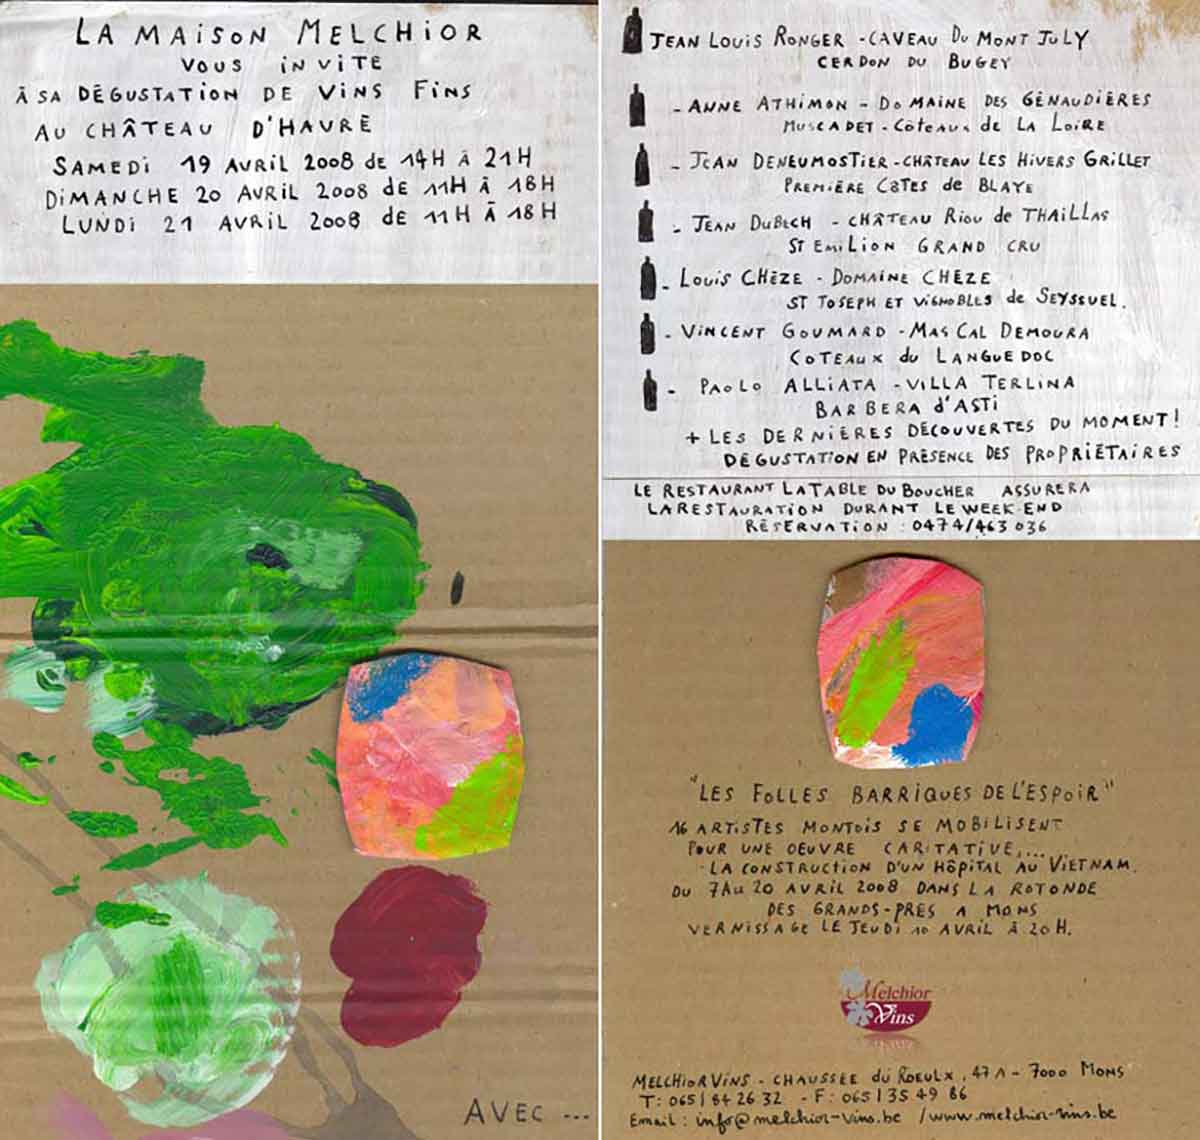 LA MAISON MELCHIOR
VOUS INVITE
À SA DÉGUSTATION DE VINS FINS
AU CHÂTEAU D'HAVRÉ
SAMEDI 19 AVRIL 2008 de 14H À 21H
DIMANCHE 20 AVRIL 2008 DE 11H À 18H
LUNDI 21 AVRIL 2008 de 11H À 18H
AVEC ...
JEAN LOUIS RONGER - CAVEAU DU MONT JULY
CERDON DU BUGEY
- ANNE ATHIMON - DOMAINE DES GÉNAUDIÈRES
MUSCADET - Côteaux de LA LOIRE
- JEAN DENEUMOSTIER - CHÂTEAU LES HIVERS GRILLET
PREMIÈRE CÔTES de BLAYE
- JEAN DUBECH - CHÂTEAU RIOU de THAILLAS
ST EMILION GRAND CRU
- LOUIS CHÈZE - DOMAINE CHÈZE
ST JOSEPH ET VIGNOBLES de SEYSSUEL.
- VINCENT GOUMARD - MAS CAL DEMOURA
COTEAUX du LANGUEDOC
- PAOLO ALLIATA - VILLA TERLINA
BARBERA d'ASTI
+ LES DERNIÈRES DÉCOUVERTES DU MOMENT!
DÉGUSTATION EN PRÉSENCE DES PROPRIÉTAIRES
LE RESTAURANT LA TABLE DU BOUCHER ASSURERA
LA RESTAURATION DURANT LE WEEK-END
RÉSERVATION : 0474/463 036
"LES FOLLES BARRIQUES DE L'ESPOIR"
16 ARTISTES MONTOIS SE MOBILISENT
POUR UNE OEUVRE CARITATIVE,...
- LA CONSTRUCTION D'UN HÔPITAL AU VIETNAM.
DU 7 AU 20 AVRIL 2008 DANS LA ROTONDE
DES GRANDS-PRÉS À MONS
VERNISSAGE LE JEUDI 10 AVRIL À 20 H.
Melchior
Vins
MELCHIOR VINS - CHAUSSÉE du ROEULX, 47 A - 7000 MONS
T: 065/84 26 32 - F: 065/35 49 86
Email : info@melchior-vins.be / www.melchior-vins.be